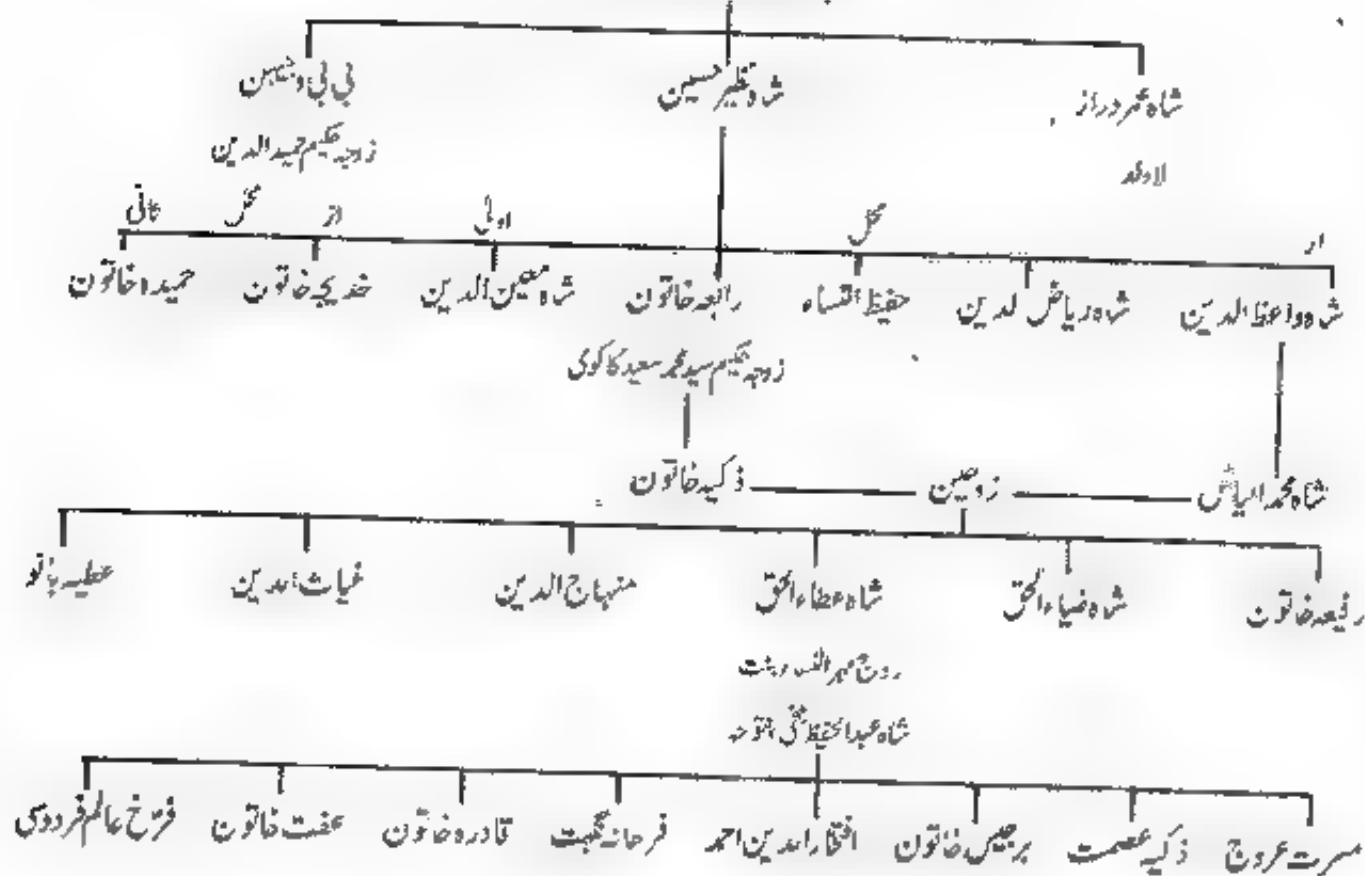 شاہ عمر دراز شاہ نظیر حسین بی بی
لاولد زوجہ حکیم حمید الدین
از محل اولیٰ از محل ثانی
شاہ واعظ الدین شاہ ریاض الدین حفیظ النساء رابعہ خاتون شاہ معین الدین خدیجہ خاتون حمیدہ خاتون
زوجہ حکیم سید محمد سعید کاکوی
شاہ محمد الیاس زوجین ذکیہ خاتون
رفیعہ خاتون شاہ ضیاء الحق شاہ عطاء الحق منہاج الدین غیاث الدین عطیہ بانو
زوج مہر النساء بنت
شاہ عبدالحفیظ فتوحہ
مسرت عروج ذکیہ عصمت برجیس خاتون افتخار الدین احمد فرحانہ نگہت قادرہ خاتون عفت خاتون فرخ عالم فردوسی